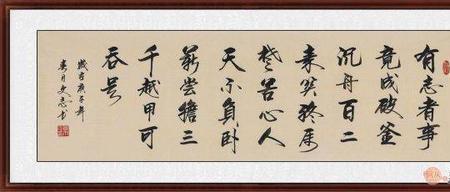 有志者事
竟成破釜
沉舟百二
秦关终属
楚苦心人
天不负卧
薪尝膽三
千越甲可
吞吴
歲在庚子年
春月文志书